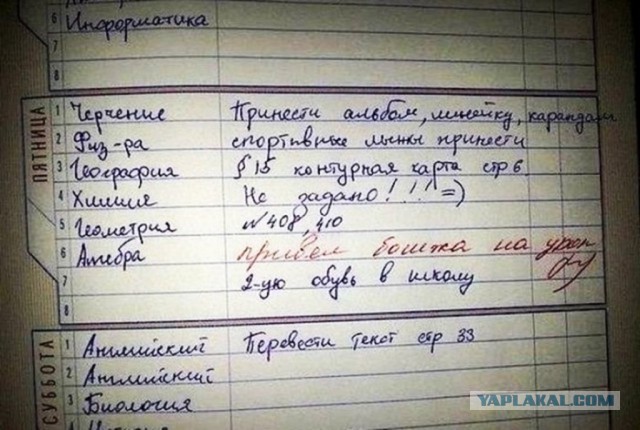 6 Информатика
7
8
ПЯТНИЦА
1 Черчение Принести альбом, линейку, карандаш
2 Физ-ра спортивные лыжы принести
3 География § 15 контурная карта стр 6
4 Химия Не задано! !!! =)
5 Геометрия №408, 410
6 Алгебра привел бошка на урок
7 2-ую обувь в школу
8
СУББОТА
1 Английский Перевести текст стр 33
2 Английский
3 Биология
4
YAPLAKAL.COM